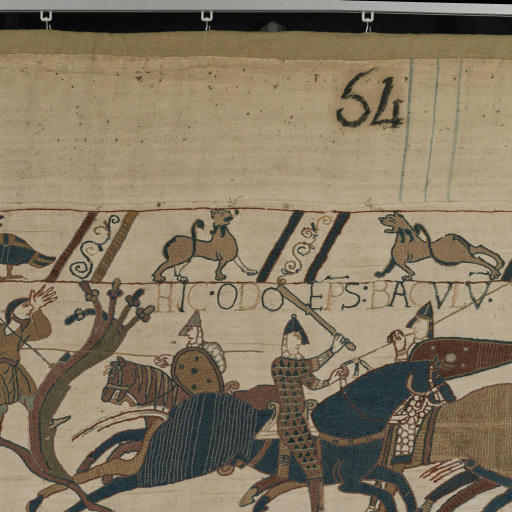 54
HIC·ODO EPS:BACVLV̄·